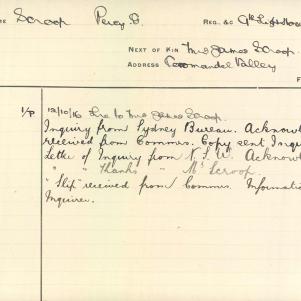 E Scroop Percy C. REG. & C 9th Light Hor
NEXT OF KIN Mrs James Scroop.
ADDRESS Coromandel Valley
F
1/P 12/10/16 to Mrs James Scroop.
Inquiry from Sydney Bureau. Acknowl
received from Commrs. Copy sent Inqu
Letter of Inquiry from N.S.W. Acknowl
" " Thanks " Mr Scroop.
"Slip" received from Commrs. Informatio
Inquirer.